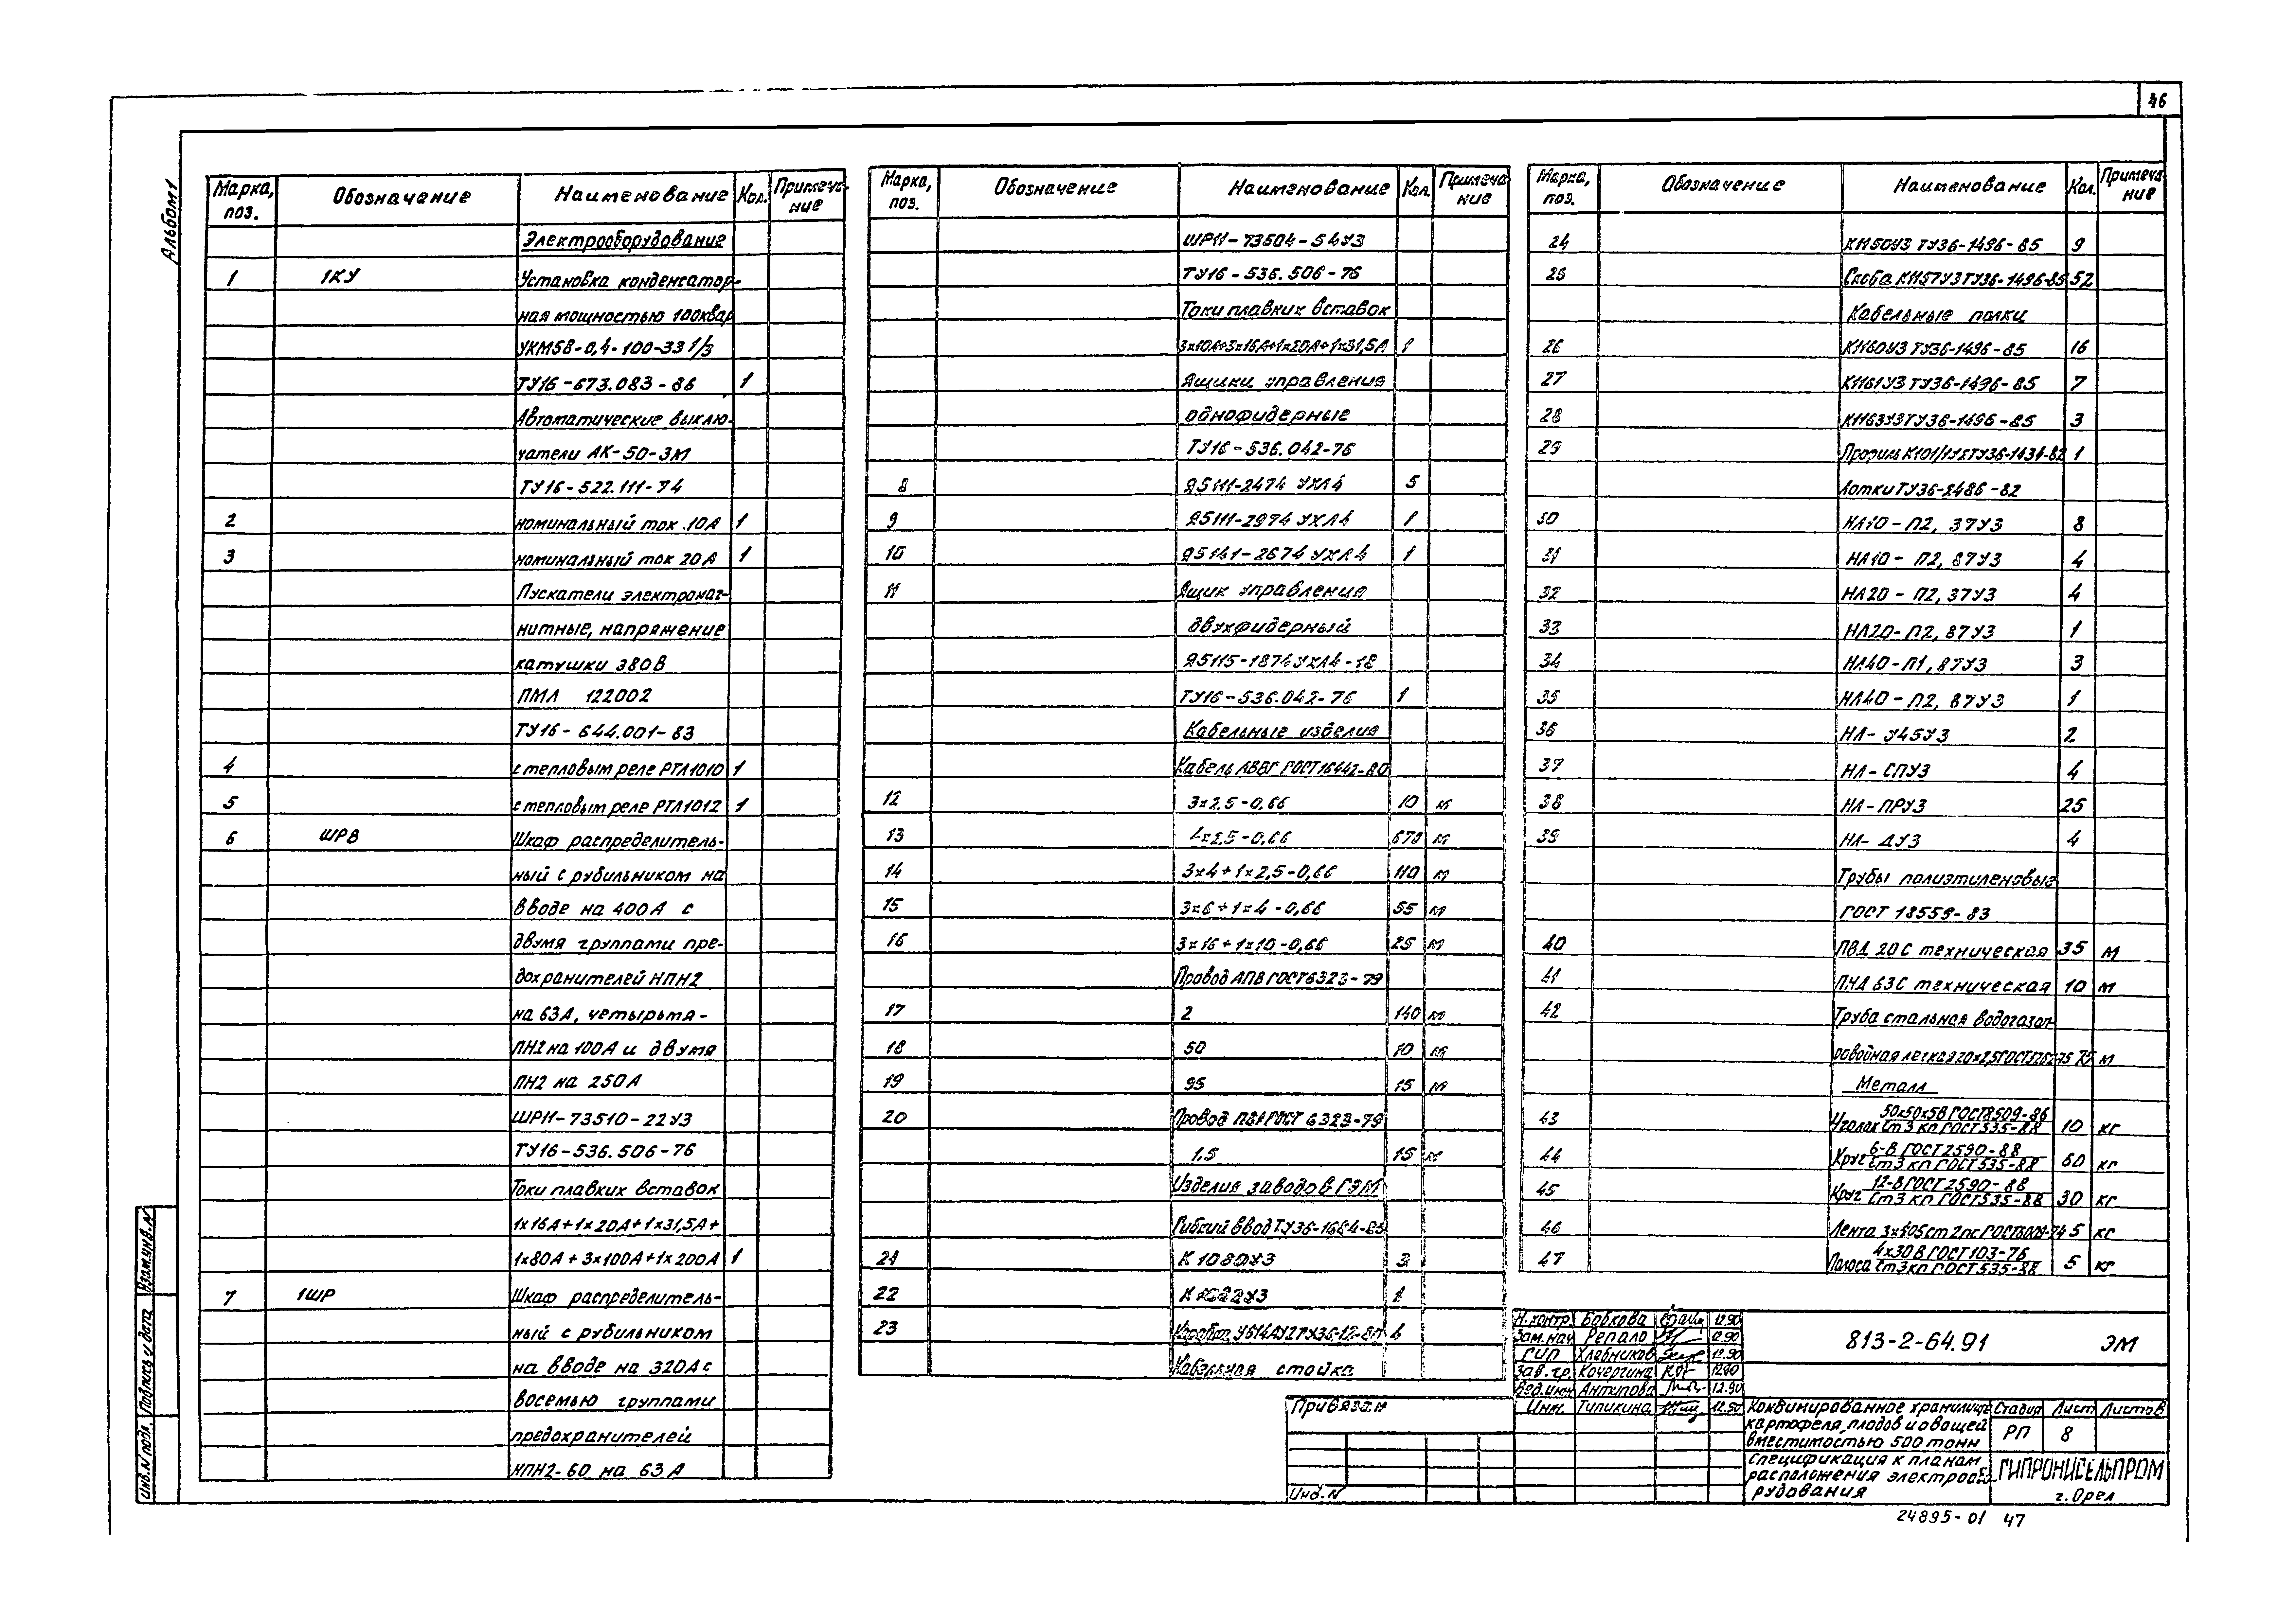 46
Альбом 1
Марка, поз. Обозначение Наименование Кол. Примечание
Электрооборудование
1 1КУ Установка конденсатор-
ная мощностью 100квар
УКМ58-0,4-100-33 1/3
ТУ16-673.083-86 1
Автоматические выклю-
чатели АК-50-3М
ТУ16-522.111-74
2 номинальный ток 10А 1
3 номинальный ток 20А 1
Пускатели электромаг-
нитные, напряжение
катушки 380В
ПМЛ 122002
ТУ16-644.001-83
4 с тепловым реле РТЛ1010 1
5 с тепловым реле РТЛ1012 1
6 ШРВ Шкаф распределитель-
ный с рубильником на
вводе на 400А с
двумя группами пре-
дохранителей НПН2
на 63А, четырьмя-
ПН2 на 100А и двумя
ПН2 на 250А
ШР11-73510-22У3
ТУ16-536.506-76
Токи плавких вставок
1х16А+1х20А+1х31,5А+
1х80А+3х100А+1х200А 1
7 1ШР Шкаф распределитель-
ный с рубильником
на вводе на 320А с
восемью группами
предохранителей
НПН2-60 на 63А
Марка, поз. Обозначение Наименование Кол. Примечание
ШР11-73504-54У3
ТУ16-536.506-76
Токи плавких вставок
3х10А+3х16А+1х20А+1х31,5А 1
Ящики управления
однофидерные
ТУ16-536.042-76
8 Я5111-2474 УХЛ4 5
9 Я5111-2974 УХЛ4 1
10 Я5141-2674 УХЛ4 1
11 Ящик управления
двухфидерный
Я5115-1874 УХЛ4-18
ТУ16-536.042-76 1
Кабельные изделия
Кабель АВВГ ГОСТ16442-80
12 3х2,5-0,66 10 м
13 4х2,5-0,66 670 м
14 3х4+1х2,5-0,66 110 м
15 3х6+1х4-0,66 55 м
16 3х16+1х10-0,66 25 м
Провод АПВ ГОСТ6323-79
17 2 140 м
18 50 10 м
19 95 15 м
20 Провод ПВ1 ГОСТ 6323-79
1,5 15 м
Изделия заводов ГЭМ
Гибкий ввод ТУ36-1684-85
21 К 1080У3 3
22 У3 1
23 Коробка У614АУ2ТУ36-12-80 4
Кабельная стойка
Марка, поз. Обозначение Наименование Кол. Примечание
24 К1150У3 ТУ36-1496-85 9
25 Скоба К1157У3ТУ36-1496-85 52
Кабельные полки
26 К1160У3 ТУ36-1496-85 16
27 К1161У3 ТУ36-1496-85 7
28 К1163У3ТУ36-1496-85 3
29 Профиль К101/1У2ТУ36-1434-82 1
Лотки ТУ36-2486-82
30 НЛ10-П2, 37У3 8
31 НЛ10-П2, 87У3 4
32 НЛ20-П2, 37У3 4
33 НЛ20-П2, 87У3 1
34 НЛ40-П1, 87У3 3
35 НЛ40-П2, 87У3 1
36 НЛ-У45У3 2
37 НЛ-СПУ3 4
38 НЛ-ПРУ3 25
39 НЛ-ДУ3 4
Трубы полиэтиленовые
ГОСТ 18559-83
40 ПВД 20С техническая 35 м
41 ПНД 63С техническая 10 м
42 Труба стальная водогазоп-
роводная легкая 20х2,5ГОСТ3262-75 75 м
Металл
43 Уголок 50х50х5В ГОСТ8509-86 / Ст3 кп ГОСТ535-88 10 кг
44 Круг 6-В ГОСТ2590-88 / Ст3 кп ГОСТ535-88 60 кг
45 Круг 12-В ГОСТ2590-88 / Ст3 кп ГОСТ535-88 30 кг
46 Лента 3х40Бст2псГОСТ6009-74 5 кг
47 Полоса 4х30В ГОСТ103-76 / Ст3кп ГОСТ535-88 5 кг
Н.контр. Бобкова 12.90
Зам.нач Репало 12.90
ГИП Хлебников 12.90
Зав.гр. Кочергина 12.90
Вед.инж Антипова 12.90
Инж. Типикина 12.90
813-2-64.91 ЭМ
Комбинированное хранилище
картофеля, плодов и овощей
вместимостью 500 тонн
Стадия Лист Листов
РП 8
Спецификация к планам
расположения электрообо-
рудования
ГИПРОНИСЕЛЬПРОМ
г.Орел
Привязан
Инв.N
Инв.N подл. Подпись и дата Взам.инв.N
24895-01 47